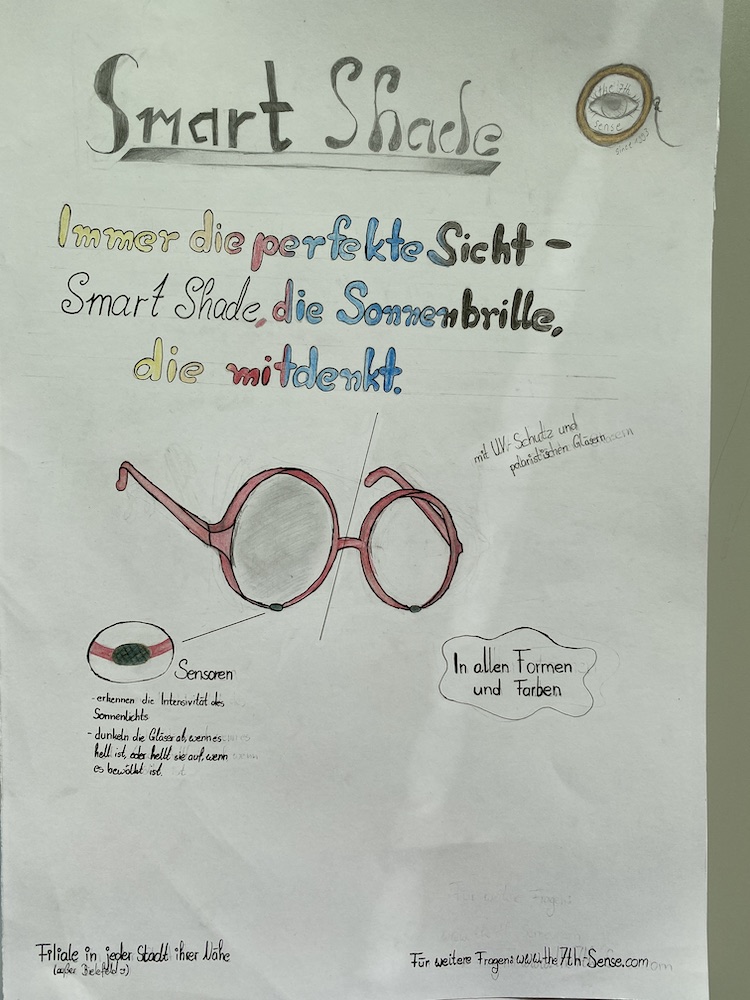 Smart Shade
the 7th
sense
since 1993
Immer die perfekte Sicht -
Smart Shade, die Sonnenbrille,
die mitdenkt.
mit UV-Schutz und
polaristischen Gläsern
Sensoren
- erkennen die Intensivität des
Sonnenlichts
- dunkeln die Gläser ab, wenn es
hell ist, oder hellt sie auf, wenn
es bewölkt ist.
In allen Formen
und Farben
Filiale in jeder Stadt ihrer Nähe
(außer Bielefeld ;)
Für weitere Fragen: www.the7th-Sense.com